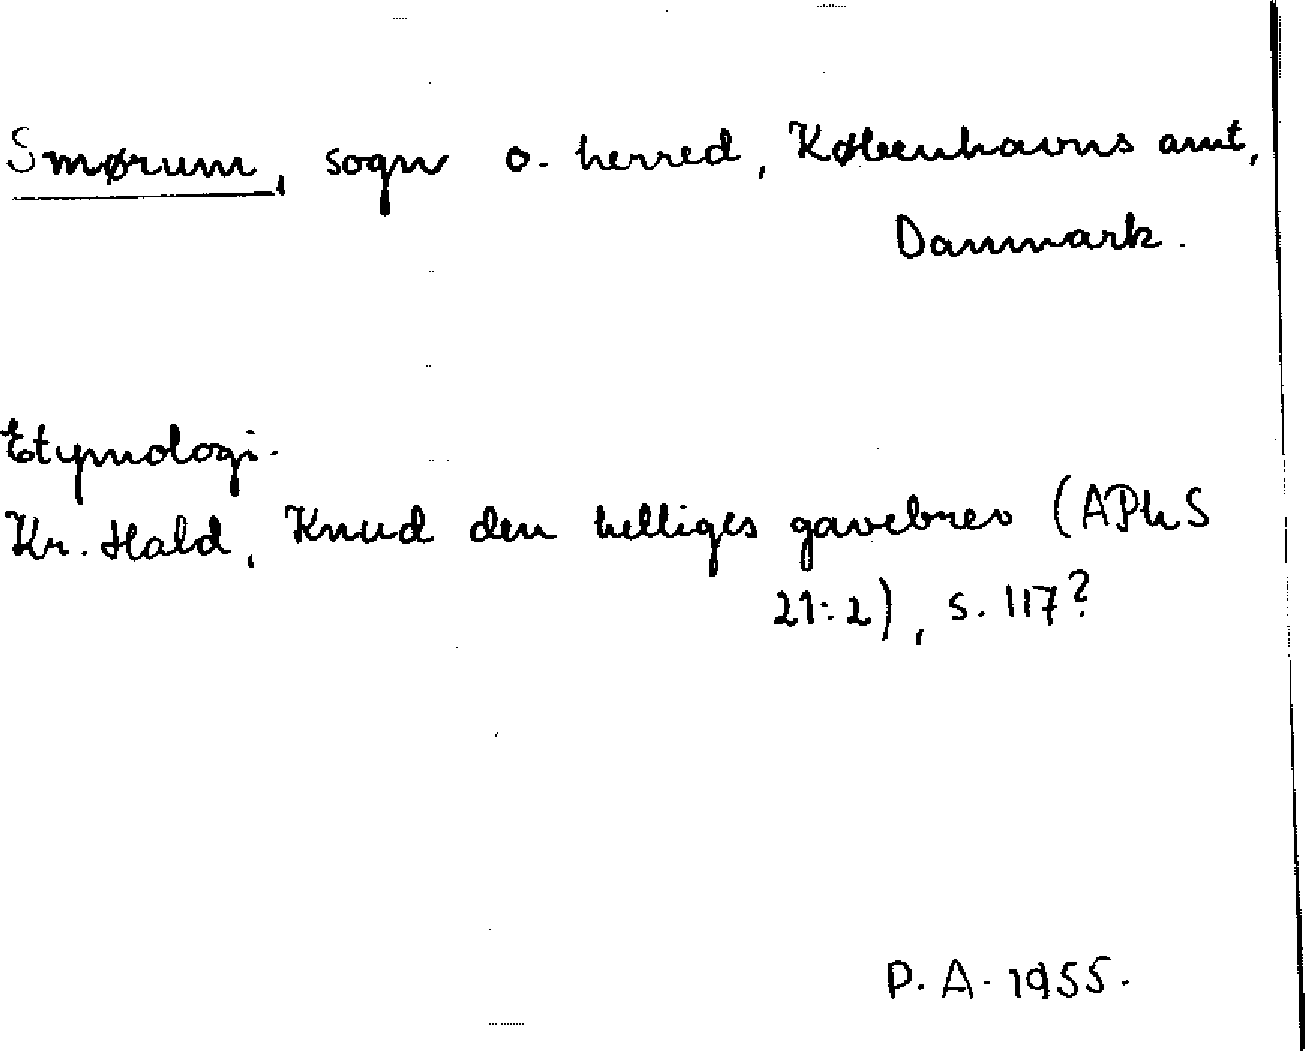 Smørum, sogn o. herred, Københavns amt,
Danmark.
Etymologi.
Kr. Hald, Knud den helliges gavebrev (APhS
21:2), s. 117?
P. A. 1955.